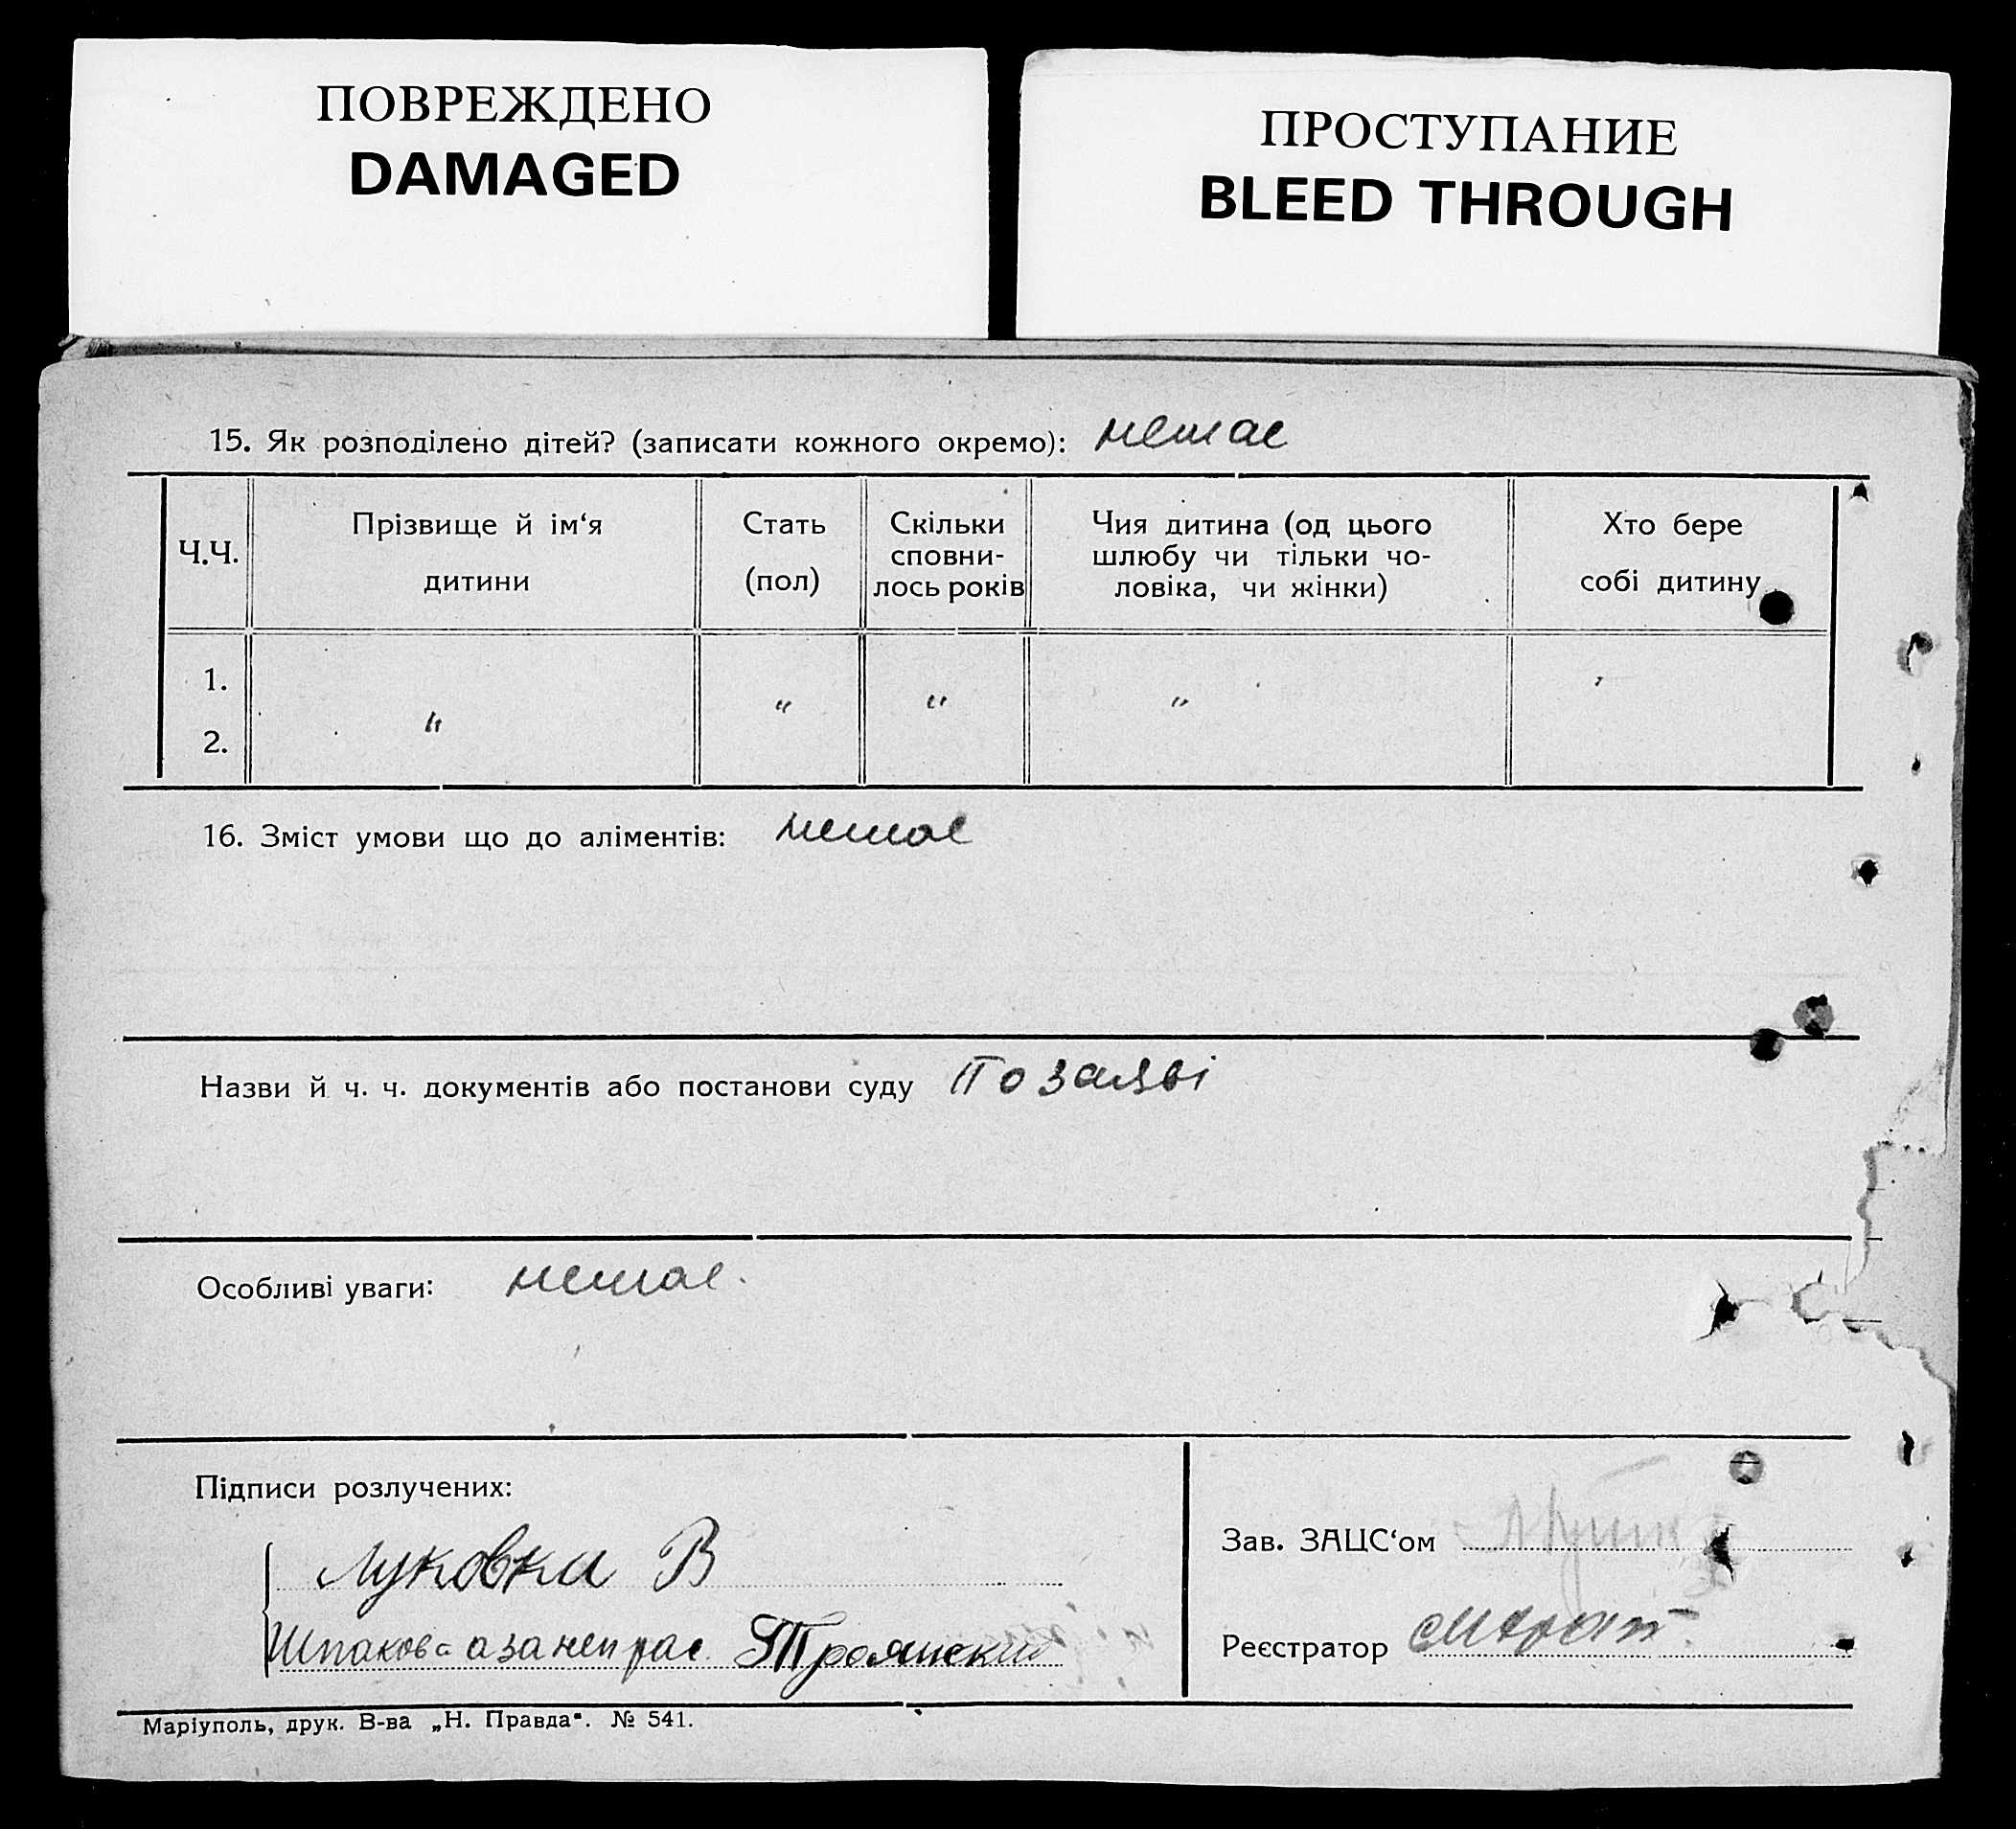 ПОВРЕЖДЕНО
DAMAGED
ПРОСТУПАНИЕ
BLEED THROUGH
15. Як розподілено дітей? (записати кожного окремо): немає
Ч.Ч.
Прізвище й ім‘я
дитини
Стать
(пол)
Скільки
сповни-
лось років
Чия дитина (од цього
шлюбу чи тільки чо-
ловіка, чи жінки)
Хто бере
собі дитину
1.
2.
„ „ „ „
16. Зміст умови що до аліментів: немає
Назви й ч. ч. документів або постанови суду По заяві
Особливі уваги: немає.
Підписи розлучених:
Луковка В
Шпакова а за неї рас. Троянский
Зав. ЗАЦС‘ом
Реєстратор
Маріуполь, друк. В-ва „Н. Правда“. № 541.